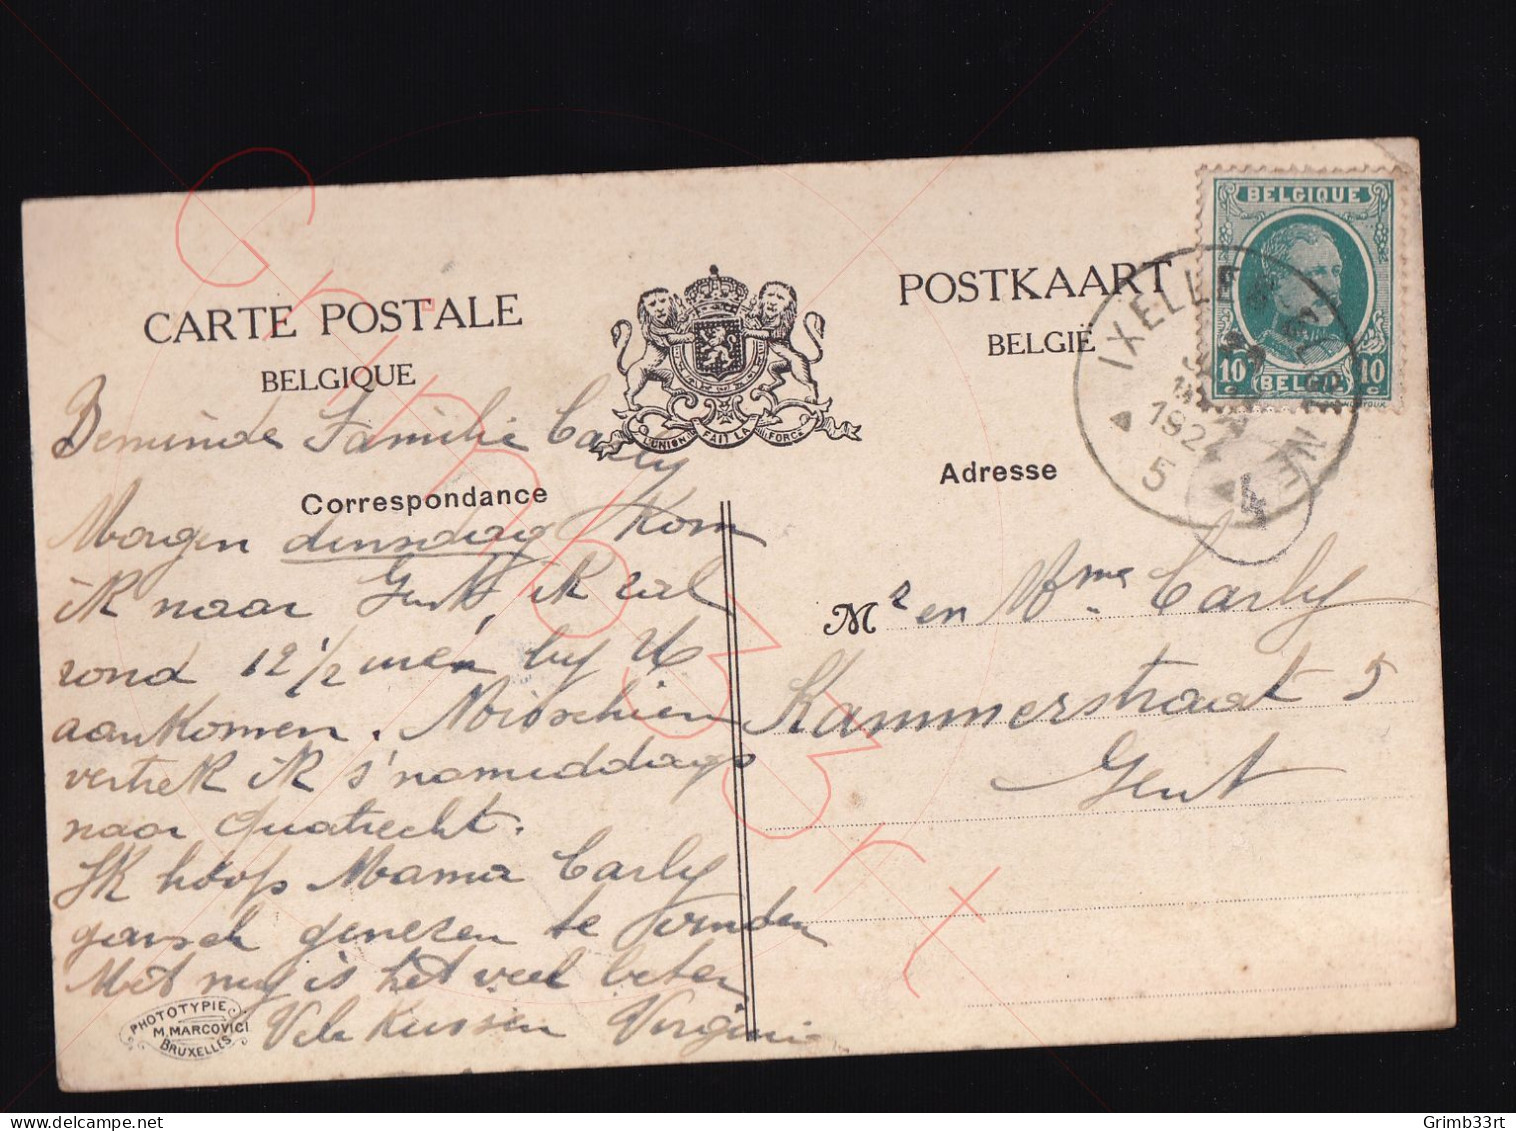 CARTE POSTALE
BELGIQUE
POSTKAART
BELGIË
L'UNION FAIT LA FORCE
BELGIQUE
10 10
BELGIË
IXELLE
192
5
4
Correspondance
Adresse
Beminde Familie Carly
Morgen dinsdag Kom
ik naar Gent, ik zal
rond 12 1/2 uren by U
aankomen. Misschien
vertrek ik s'namiddags
naar Quatrecht.
Ik hoop Mama Carly
gansch genezen te vinden
Met my is het veel beter
Vele Kussen Virginie
Mr en Mme Carly
Kammerstraat 5
Gent
PHOTOTYPIE
M. MARCOVICI
BRUXELLES
Grimb33rt
Grimb33rt